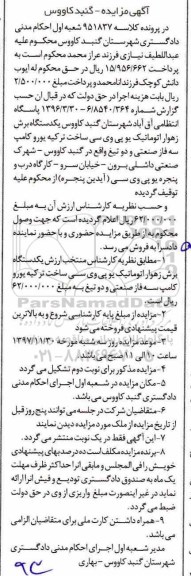 آگهی مزایده - گنبد کاووس
در پرونده کلاسه ۹۵۱۸۳۷ شعبه اول اجرای احکام مدنی
دادگستری شهرستان گنبد کاووس محکوم علیه
عبداللطیف نیازی فرزند عراز محمد محکوم است به
پرداخت ۱۵/۹۵۶/۶۶۲ ریال در حق محکوم له ایوب
دانش کوچک فرزند انامحمد و پرداخت مبلغ ۲/۵۰۰/۰۰۰
ریال بابت هزینه اجرا در حق دولت که در قبال آن حسب
گزارش شماره ۶/۸۵۴۰/۲۶۴ - ۱۳۹۶/۳/۲۰ پاسگاه
انتظامی آق آباد شهرستان گنبد کاووس یکدستگاه برش
زهوار اتوماتیک یو پی وی سی ساخت ترکیه یورو کامپ
سه فاز صنعتی و دو تیغ واقع در گنبد کاووس - شهرک
صنعتی داشلی برون - خیابان سرو - کارگاه درب و
پنجره یو پی وی سی (آیدین پنجره) از محکوم علیه
توقیف گردیده
و حسب نظریه کارشناس ارزش آن به مبلغ
۶۲/۰۰۰/۰۰۰ ریال اعلام گردیده است که جهت وصول
محکوم به از طریق مزایده حضوری و با حضور نماینده
دادسرا به فروش می رسد.
۱- مطابق نظریه کارشناس منتخب ارزش یکدستگاه
برش زهوار اتوماتیک یو پی وی سی ساخت ترکیه یورو
کامپ سه فاز صنعتی و دو تیغ به مبلغ ۶۲/۰۰۰/۰۰۰
ریال است.
۲- مزایده از مبلغ پایه کارشناسی شروع و به بالاترین
قیمت پیشنهادی فروخته می شود
۳- موعد مزایده روز سه شنبه مورخه ۱۳۹۷/۱۱/۳۰
ساعت ۱۰ الی ۱۱ صبح می باشد
۴- مزایده مذکور برای نوبت دوم تشکیل می گردد
۵- مکان مزایده در شعبه اول اجرای احکام مدنی
دادگستری گنبد کاووس می باشد.
۶- متقاضیان شرکت در جلسه می توانند پنج روز قبل
از تاریخ مزایده از ملک مورد مزایده دیدن نمایند
۷- این آگهی فقط در یک نوبت منتشر می گردد.
۸- برنده مزایده مکلف است ده درصد بهای پیشنهادی
خویش را فی المجلس و مابقی آن را حداکثر ظرف مهلت
یک ماه به صندوق دادگستری تودیع و فیش آن را ارائه
نماید در غیر اینصورت مبلغ واریزی از وی در حق دولت
ضبط می گردد.
۹- همراه داشتن کارت ملی برای متقاضیان الزامی
می باشد.
مدیر شعبه اول اجرای احکام مدنی دادگستری
شهرستان گنبد کاووس - بهاری